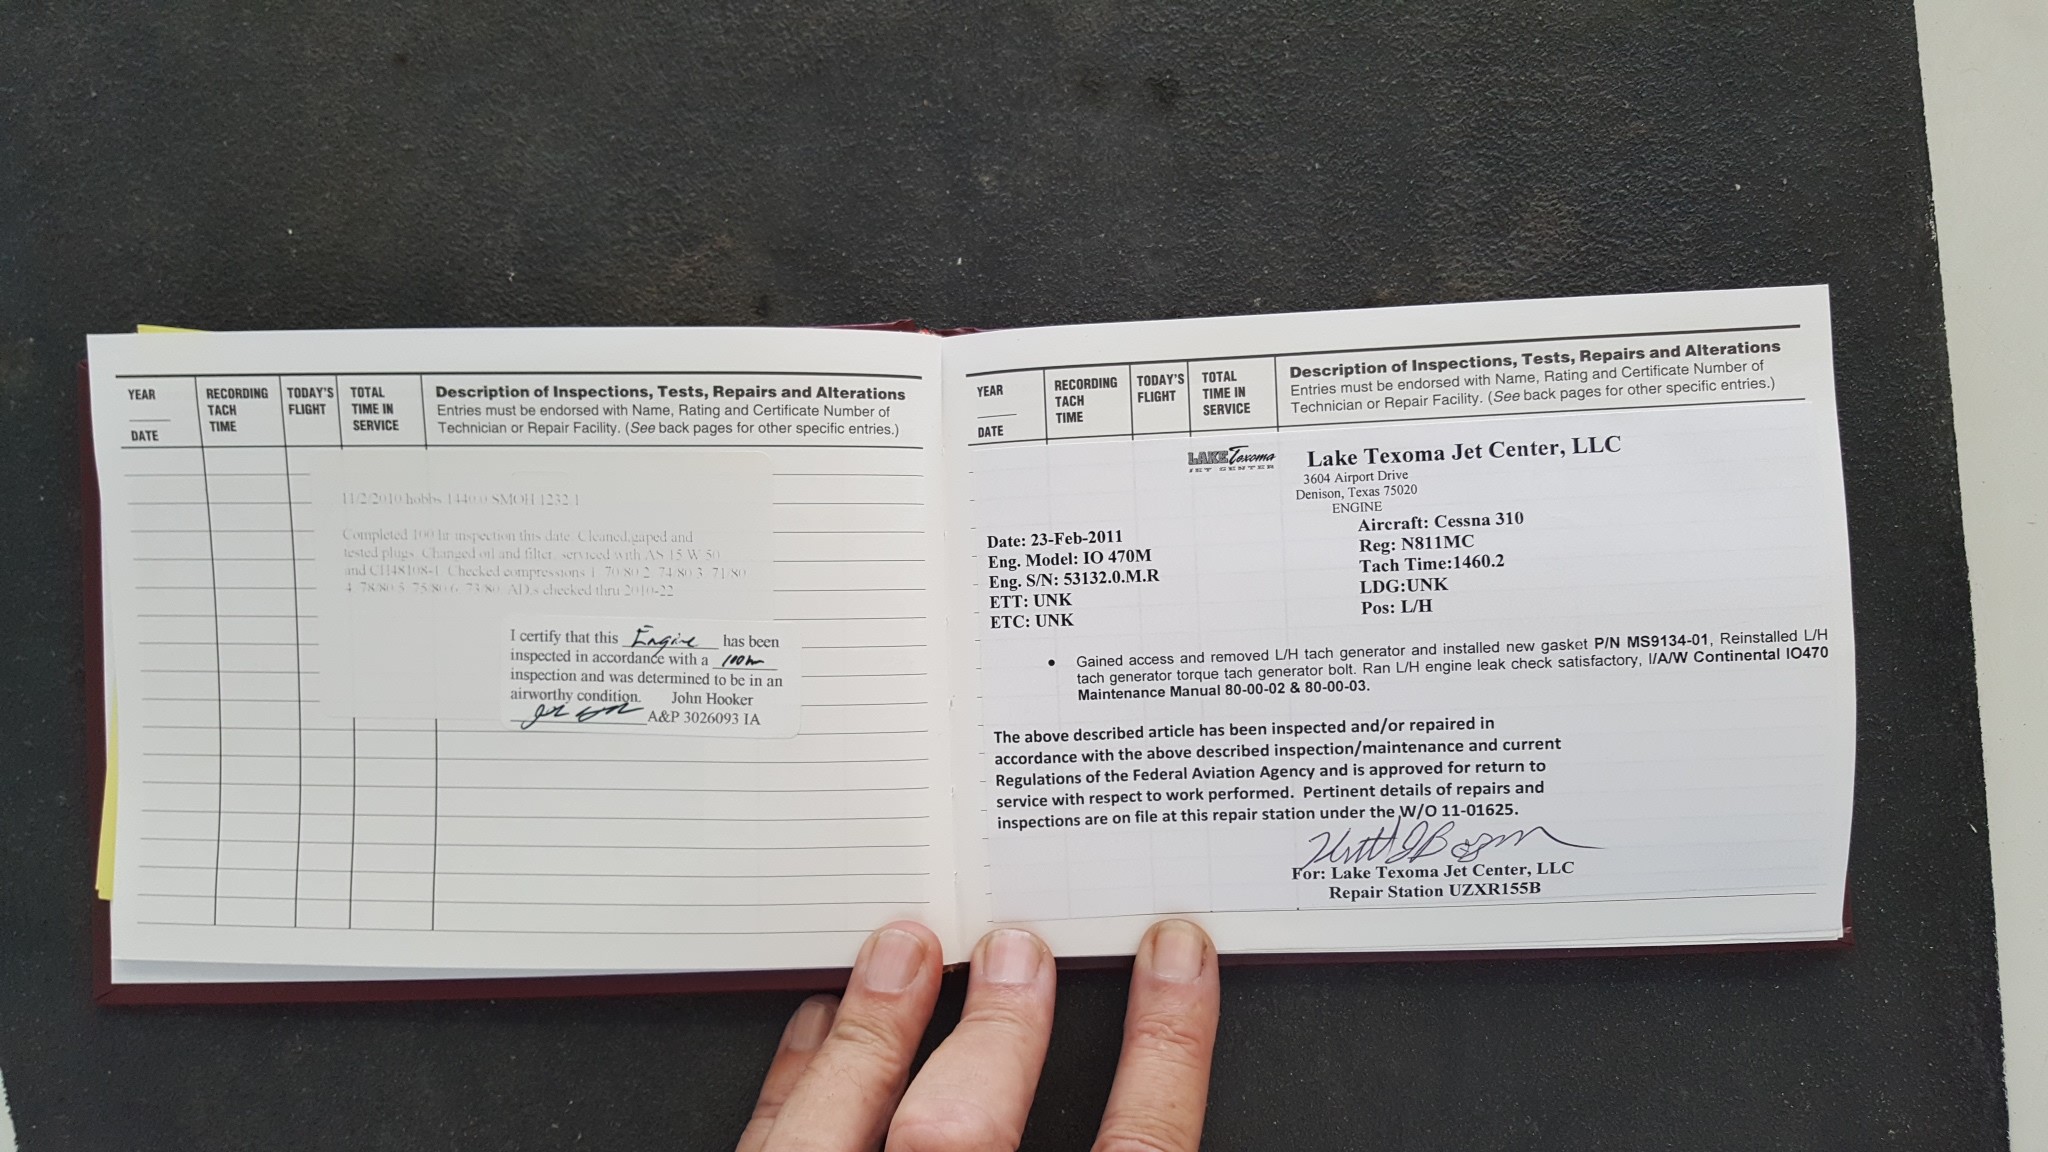 YEAR
DATE
RECORDING
TACH
TIME
TODAY'S
FLIGHT
TOTAL
TIME IN
SERVICE
Description of Inspections, Tests, Repairs and Alterations
Entries must be endorsed with Name, Rating and Certificate Number of
Technician or Repair Facility. (See back pages for other specific entries.)
11/2/2010 hobbs 1440.0 SMOH 1232.1
Completed 100 hr inspection this date. Cleaned,gaped and
tested plugs. Changed oil and filter, serviced with AS 15 W 50
and CH48108-1. Checked compressions 1- 70/80 2- 74/80 3- 71/80
4- 78/80 5- 75/80 6- 73/80. AD,s checked thru 2010-22
I certify that this Engine has been
inspected in accordance with a 100hr
inspection and was determined to be in an
airworthy condition. John Hooker
A&P 3026093 IA
YEAR
DATE
RECORDING
TACH
TIME
TODAY'S
FLIGHT
TOTAL
TIME IN
SERVICE
Description of Inspections, Tests, Repairs and Alterations
Entries must be endorsed with Name, Rating and Certificate Number of
Technician or Repair Facility. (See back pages for other specific entries.)
LAKE Texoma
JET CENTER
Lake Texoma Jet Center, LLC
3604 Airport Drive
Denison, Texas 75020
ENGINE
Date: 23-Feb-2011
Eng. Model: IO 470M
Eng. S/N: 53132.0.M.R
ETT: UNK
ETC: UNK
Aircraft: Cessna 310
Reg: N811MC
Tach Time:1460.2
LDG:UNK
Pos: L/H
• Gained access and removed L/H tach generator and installed new gasket P/N MS9134-01, Reinstalled L/H
tach generator torque tach generator bolt. Ran L/H engine leak check satisfactory, I/A/W Continental IO470
Maintenance Manual 80-00-02 & 80-00-03.
The above described article has been inspected and/or repaired in
accordance with the above described inspection/maintenance and current
Regulations of the Federal Aviation Agency and is approved for return to
service with respect to work performed. Pertinent details of repairs and
inspections are on file at this repair station under the W/O 11-01625.
For: Lake Texoma Jet Center, LLC
Repair Station UZXR155B